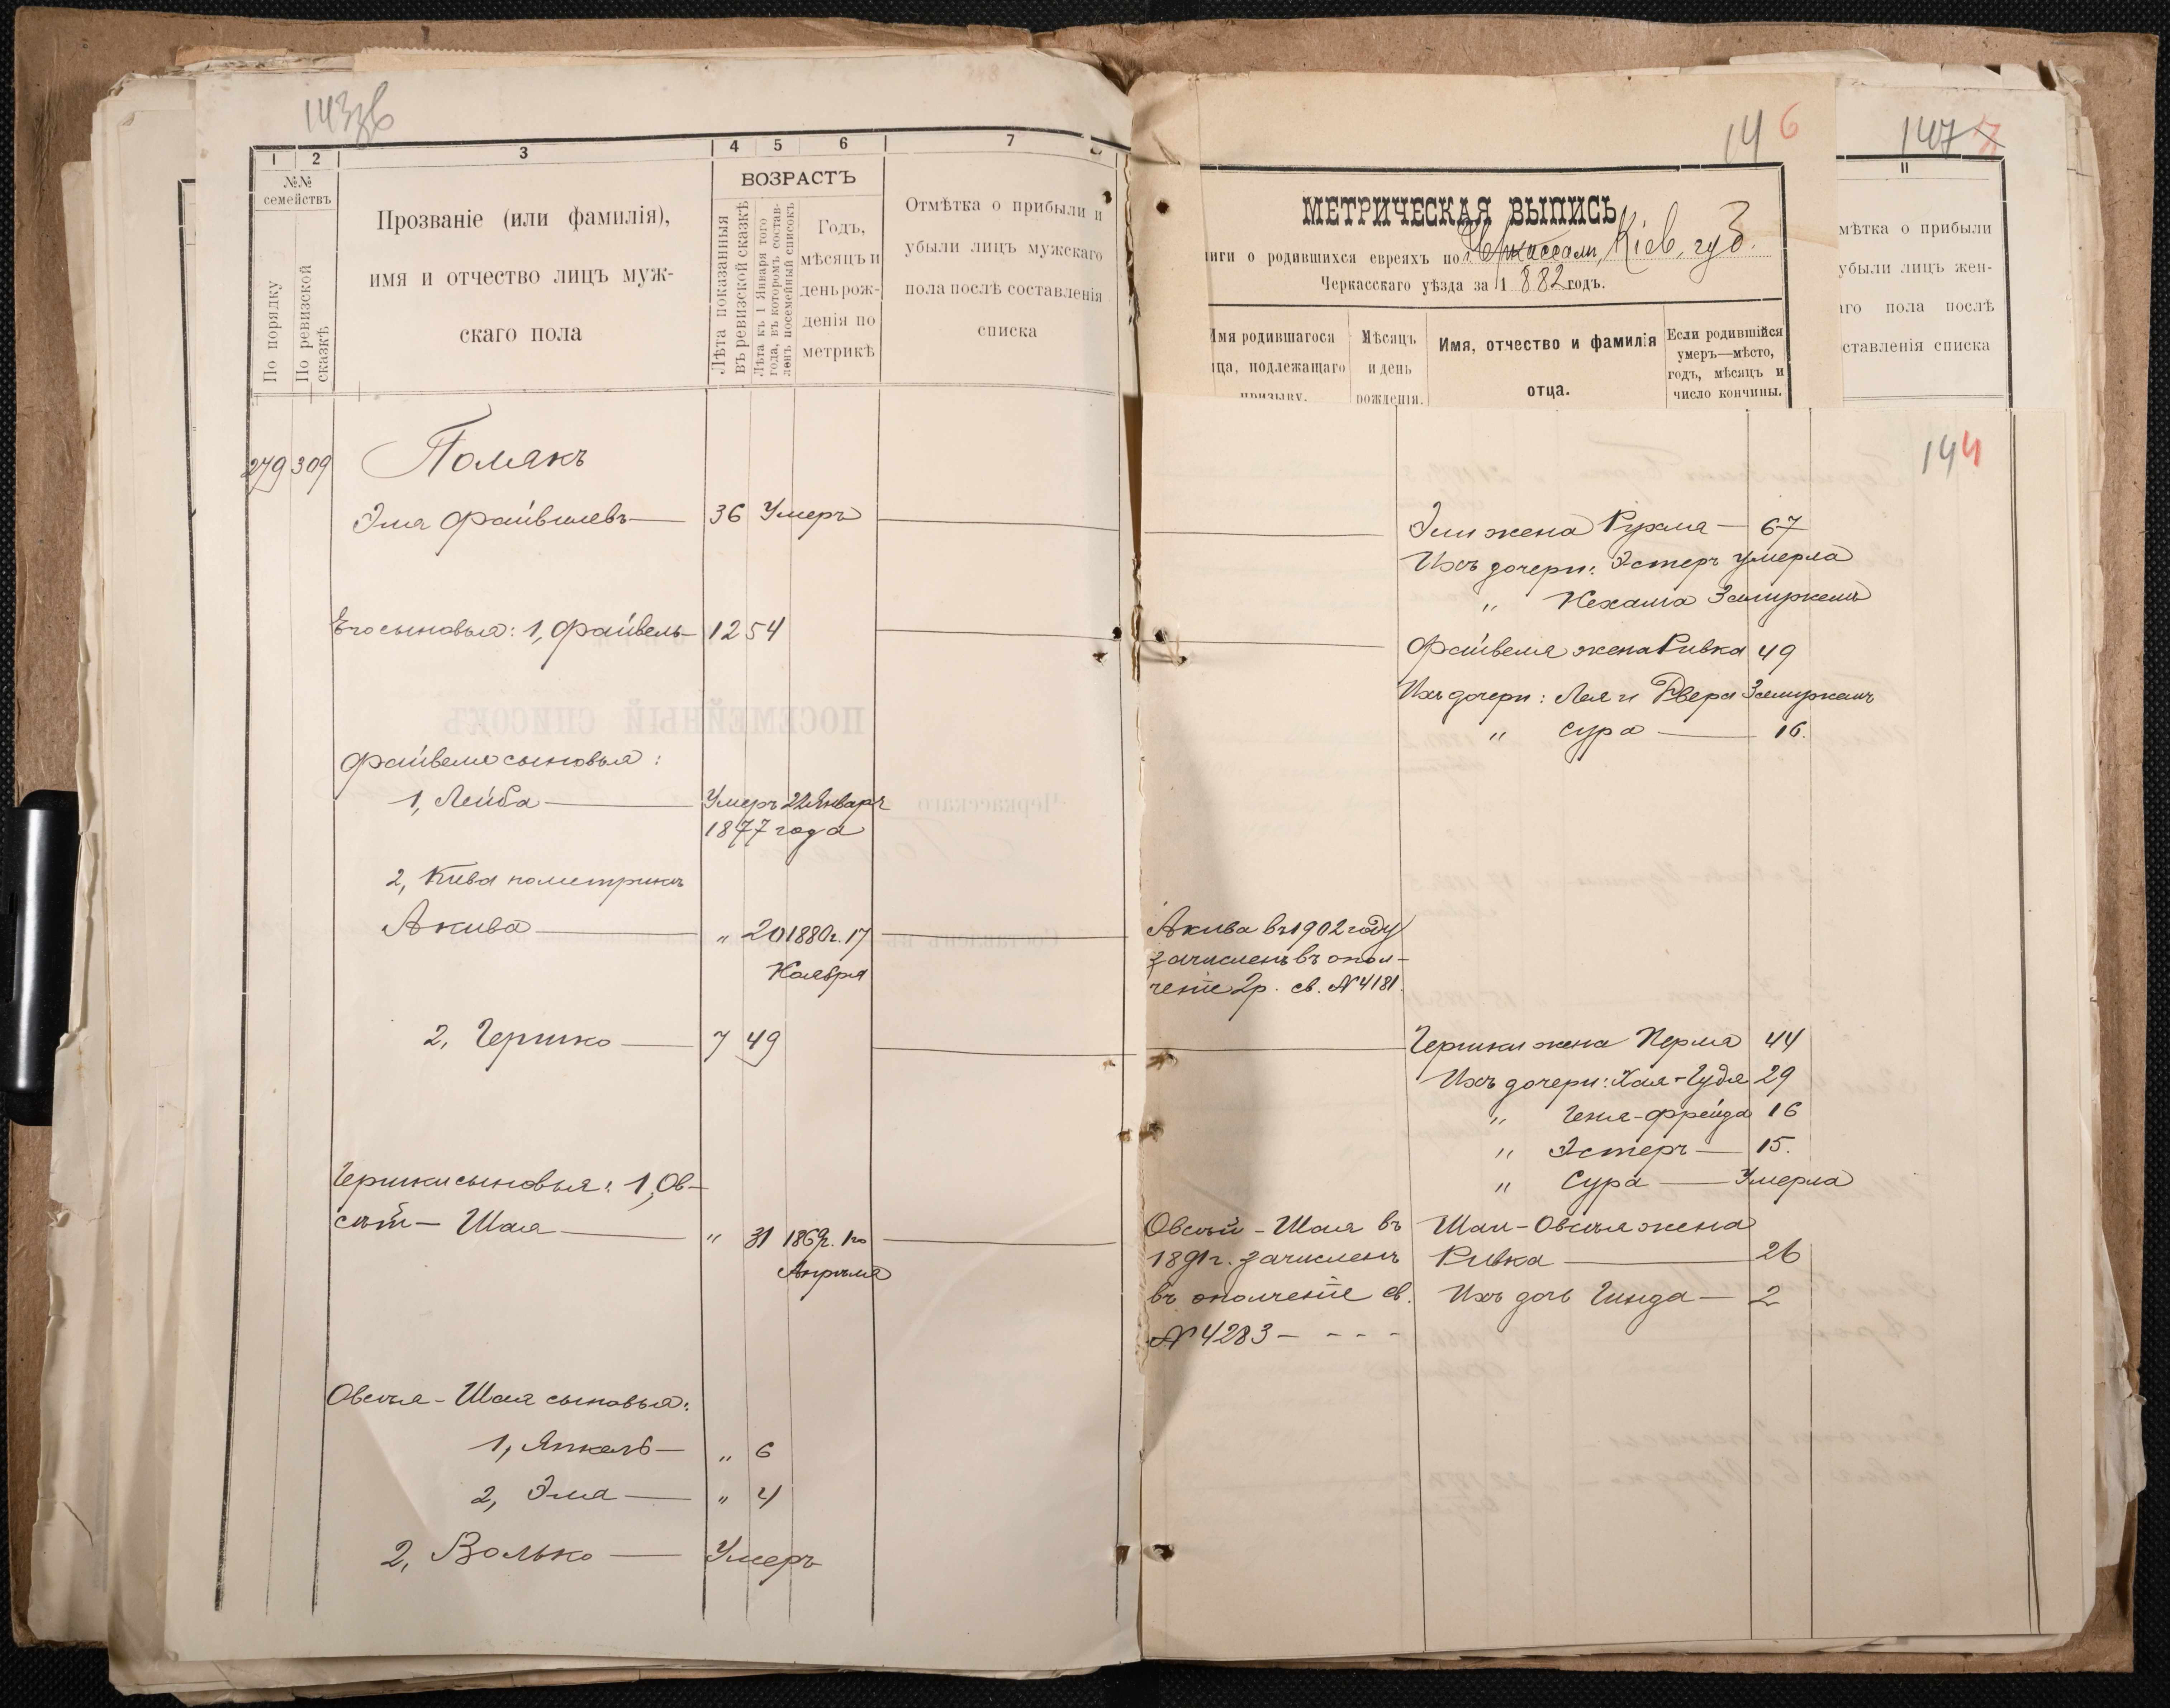 143об
1 2 3 4 5 6 7
№№ семействъ
По порядку
По ревизской сказкѣ
Прозваніе (или фамилія),
имя и отчество лицъ муж-
скаго пола
ВОЗРАСТЪ
Лѣта показанныя
въ ревизской сказкѣ
Лѣта къ 1 Января того
года, въ которомъ состав-
ленъ посемейный списокъ
Годъ,
мѣсяцъ и
день рож-
денія по
метрикѣ
Отмѣтка о прибыли и
убыли лицъ мужскаго
пола послѣ составленія
списка
279 309 Полякъ
Эля Файвишевъ — 36 Умеръ
Его сыновья: 1, Файвель — 12 54
Файвеля сыновья:
1, Лейба — Умеръ 22 Января
1877 года
2, Кива по метрикѣ
Акива — „ 20 1880 г. 17
Ноября
2, Гершко — 7 49
Гершки сыновья: 1, Ов-
сѣй — Шая — „ 31 1869 г. 1го
Апрѣля
Овсѣя - Шая сыновья:
1, Янкель — „ 6
2, Эля — „ 4
2, Волько — Умеръ
146
МЕТРИЧЕСКАЯ ВЫПИСЬ
иги о родившихся евреяхъ по г. Черкассам, Кіев. губ.
Черкасскаго уѣзда за 1882 годъ.
Имя родившагося
ца, подлежащаго
призыву.
Мѣсяцъ
и день
рожденія.
Имя, отчество и фамилія
отца.
Если родившійся
умеръ—мѣсто,
годъ, мѣсяцъ и
число кончины.
147
11
мѣтка о прибыли
убыли лицъ жен-
аго пола послѣ
ставленія списка
144
Эли жена Рухля — 67
Ихъ дочери: Эстеръ умерла
„ Нехама Замужемъ
Файвеля жена Ривка 49
Ихъ дочери: Лея и Двера Замужемъ
„ Сура — 16.
Акива въ 1902 году
зачисленъ въ опол-
ченіе 2 р. св. № 4181.
Гершки жена Перля 44
Ихъ дочери: Хая-Гудя 29
„ Геня-Фрейда 16
„ Эстеръ — 15.
„ Сура — Умерла
Овсѣй - Шая въ
1891 г. зачисленъ
въ ополченіе св.
№ 4283 - - - -
Шаи - Овсѣя жена
Ривка — 26
Ихъ дочь Гинда — 2